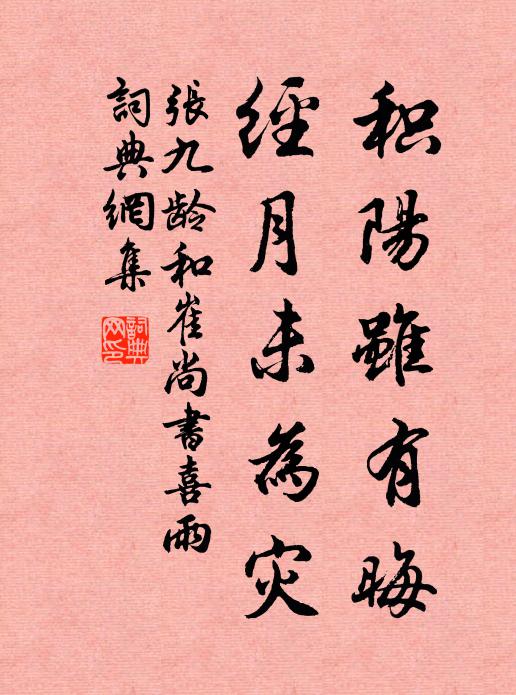 积陽雖有晦
經月未為灾
張九龄和崔尚書喜雨
詞典網集
詞典网印